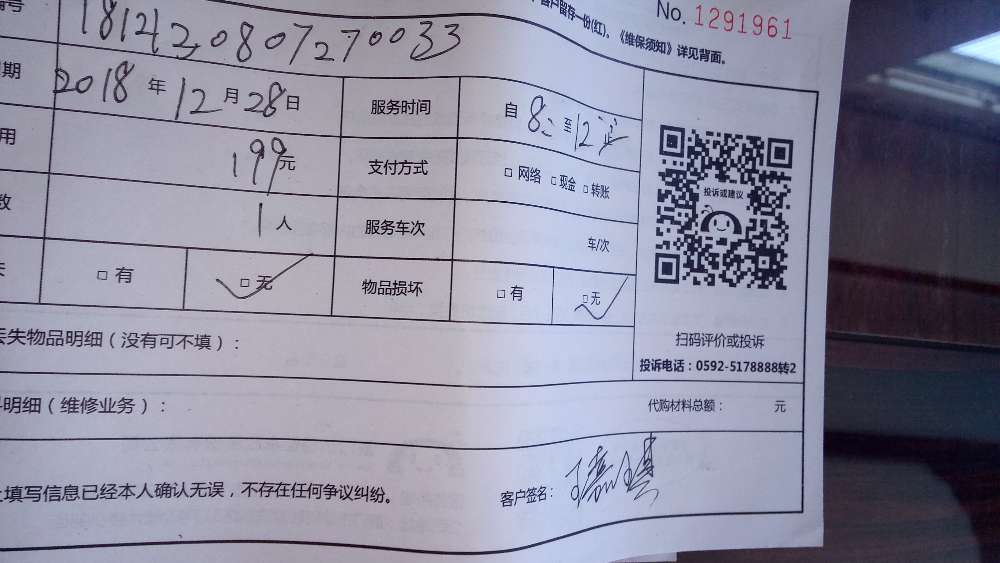 客户留存一份(红)。《维保须知》详见背面。
No. 1291961
编号 181212080727003３
期 2018 年 12 月 28 日 服务时间 自 8: 至 12
用 199 元 支付方式 □ 网络 □ 现金 □ 转账
数 1 人 服务车次 车/次
失 □ 有 □ 无 物品损坏 □ 有 □ 无
投诉或建议
扫码评价或投诉
投诉电话：0592-5178888转2
丢失物品明细（没有可不填）：
明细（维修业务）： 代购材料总额： 元
上填写信息已经本人确认无误，不存在任何争议纠纷。 客户签名：